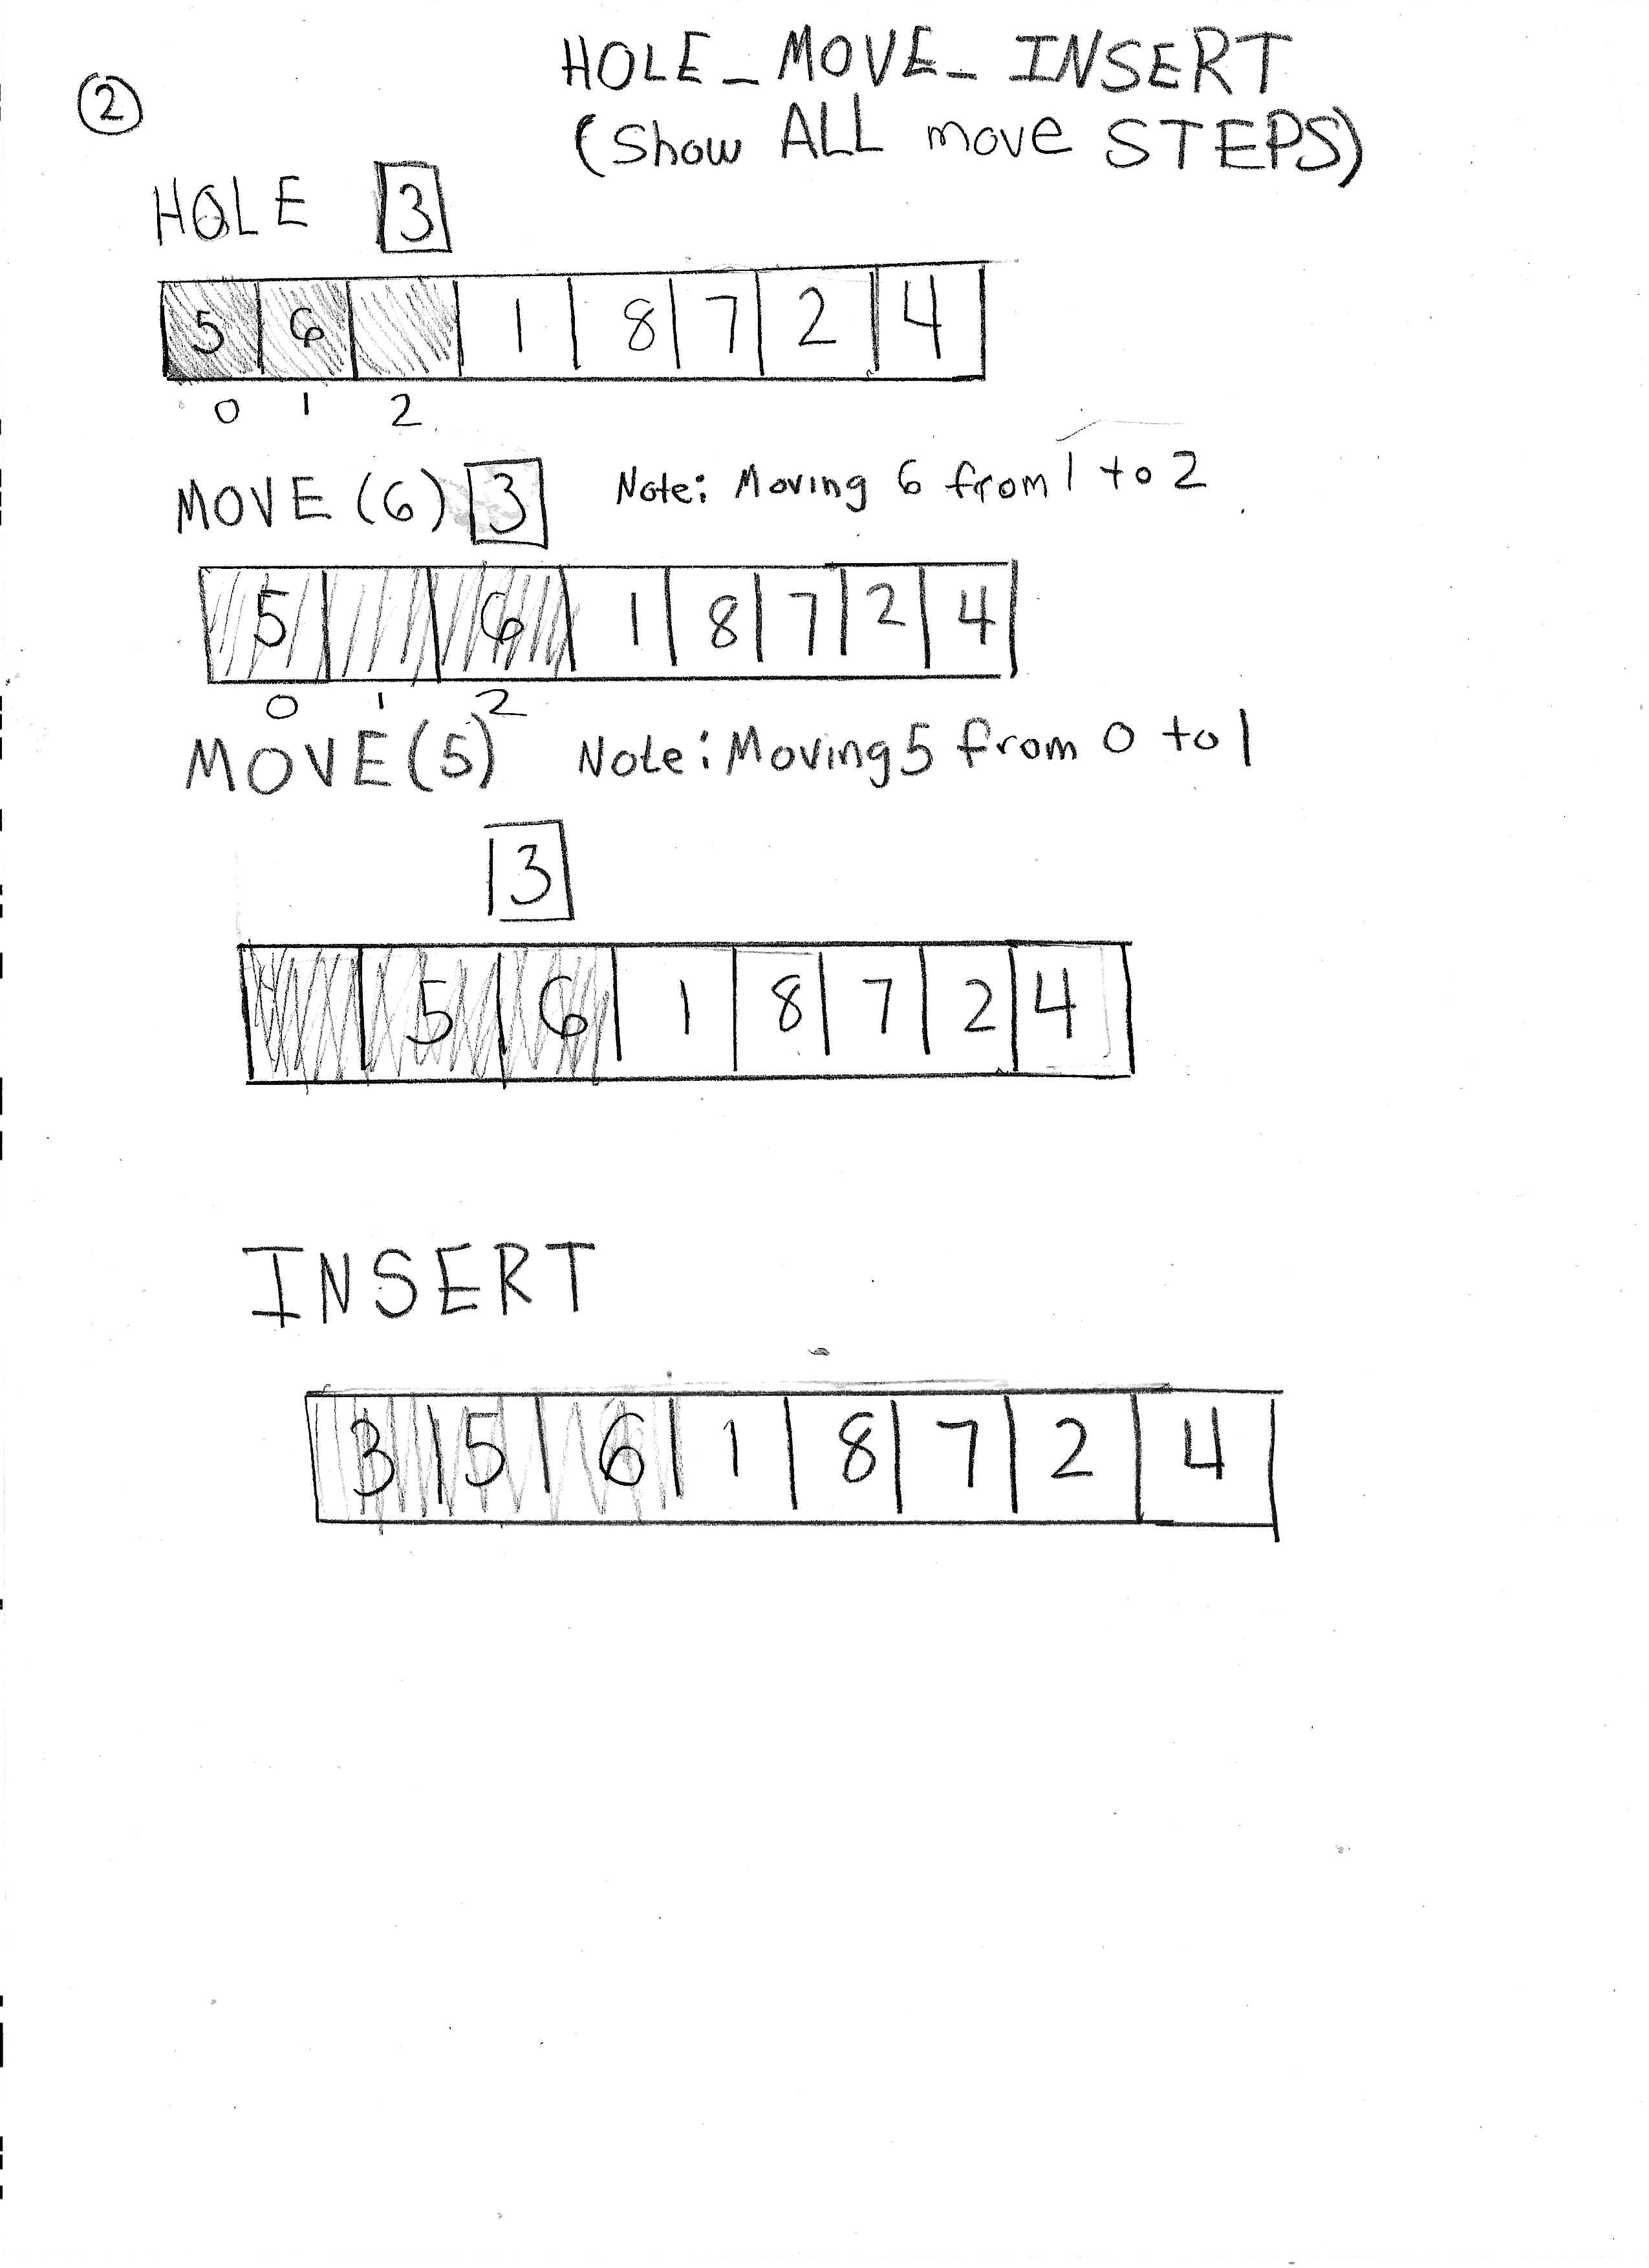 ②
HOLE_MOVE_INSERT
(Show ALL move STEPS)
HOLE 3
5 6 1 8 7 2 4
0 1 2
MOVE (6) 3 Note: Moving 6 from 1 to 2
5 6 1 8 7 2 4
0 1 2
MOVE(5) Note: Moving 5 from 0 to 1
3
5 6 1 8 7 2 4
INSERT
3 5 6 1 8 7 2 4